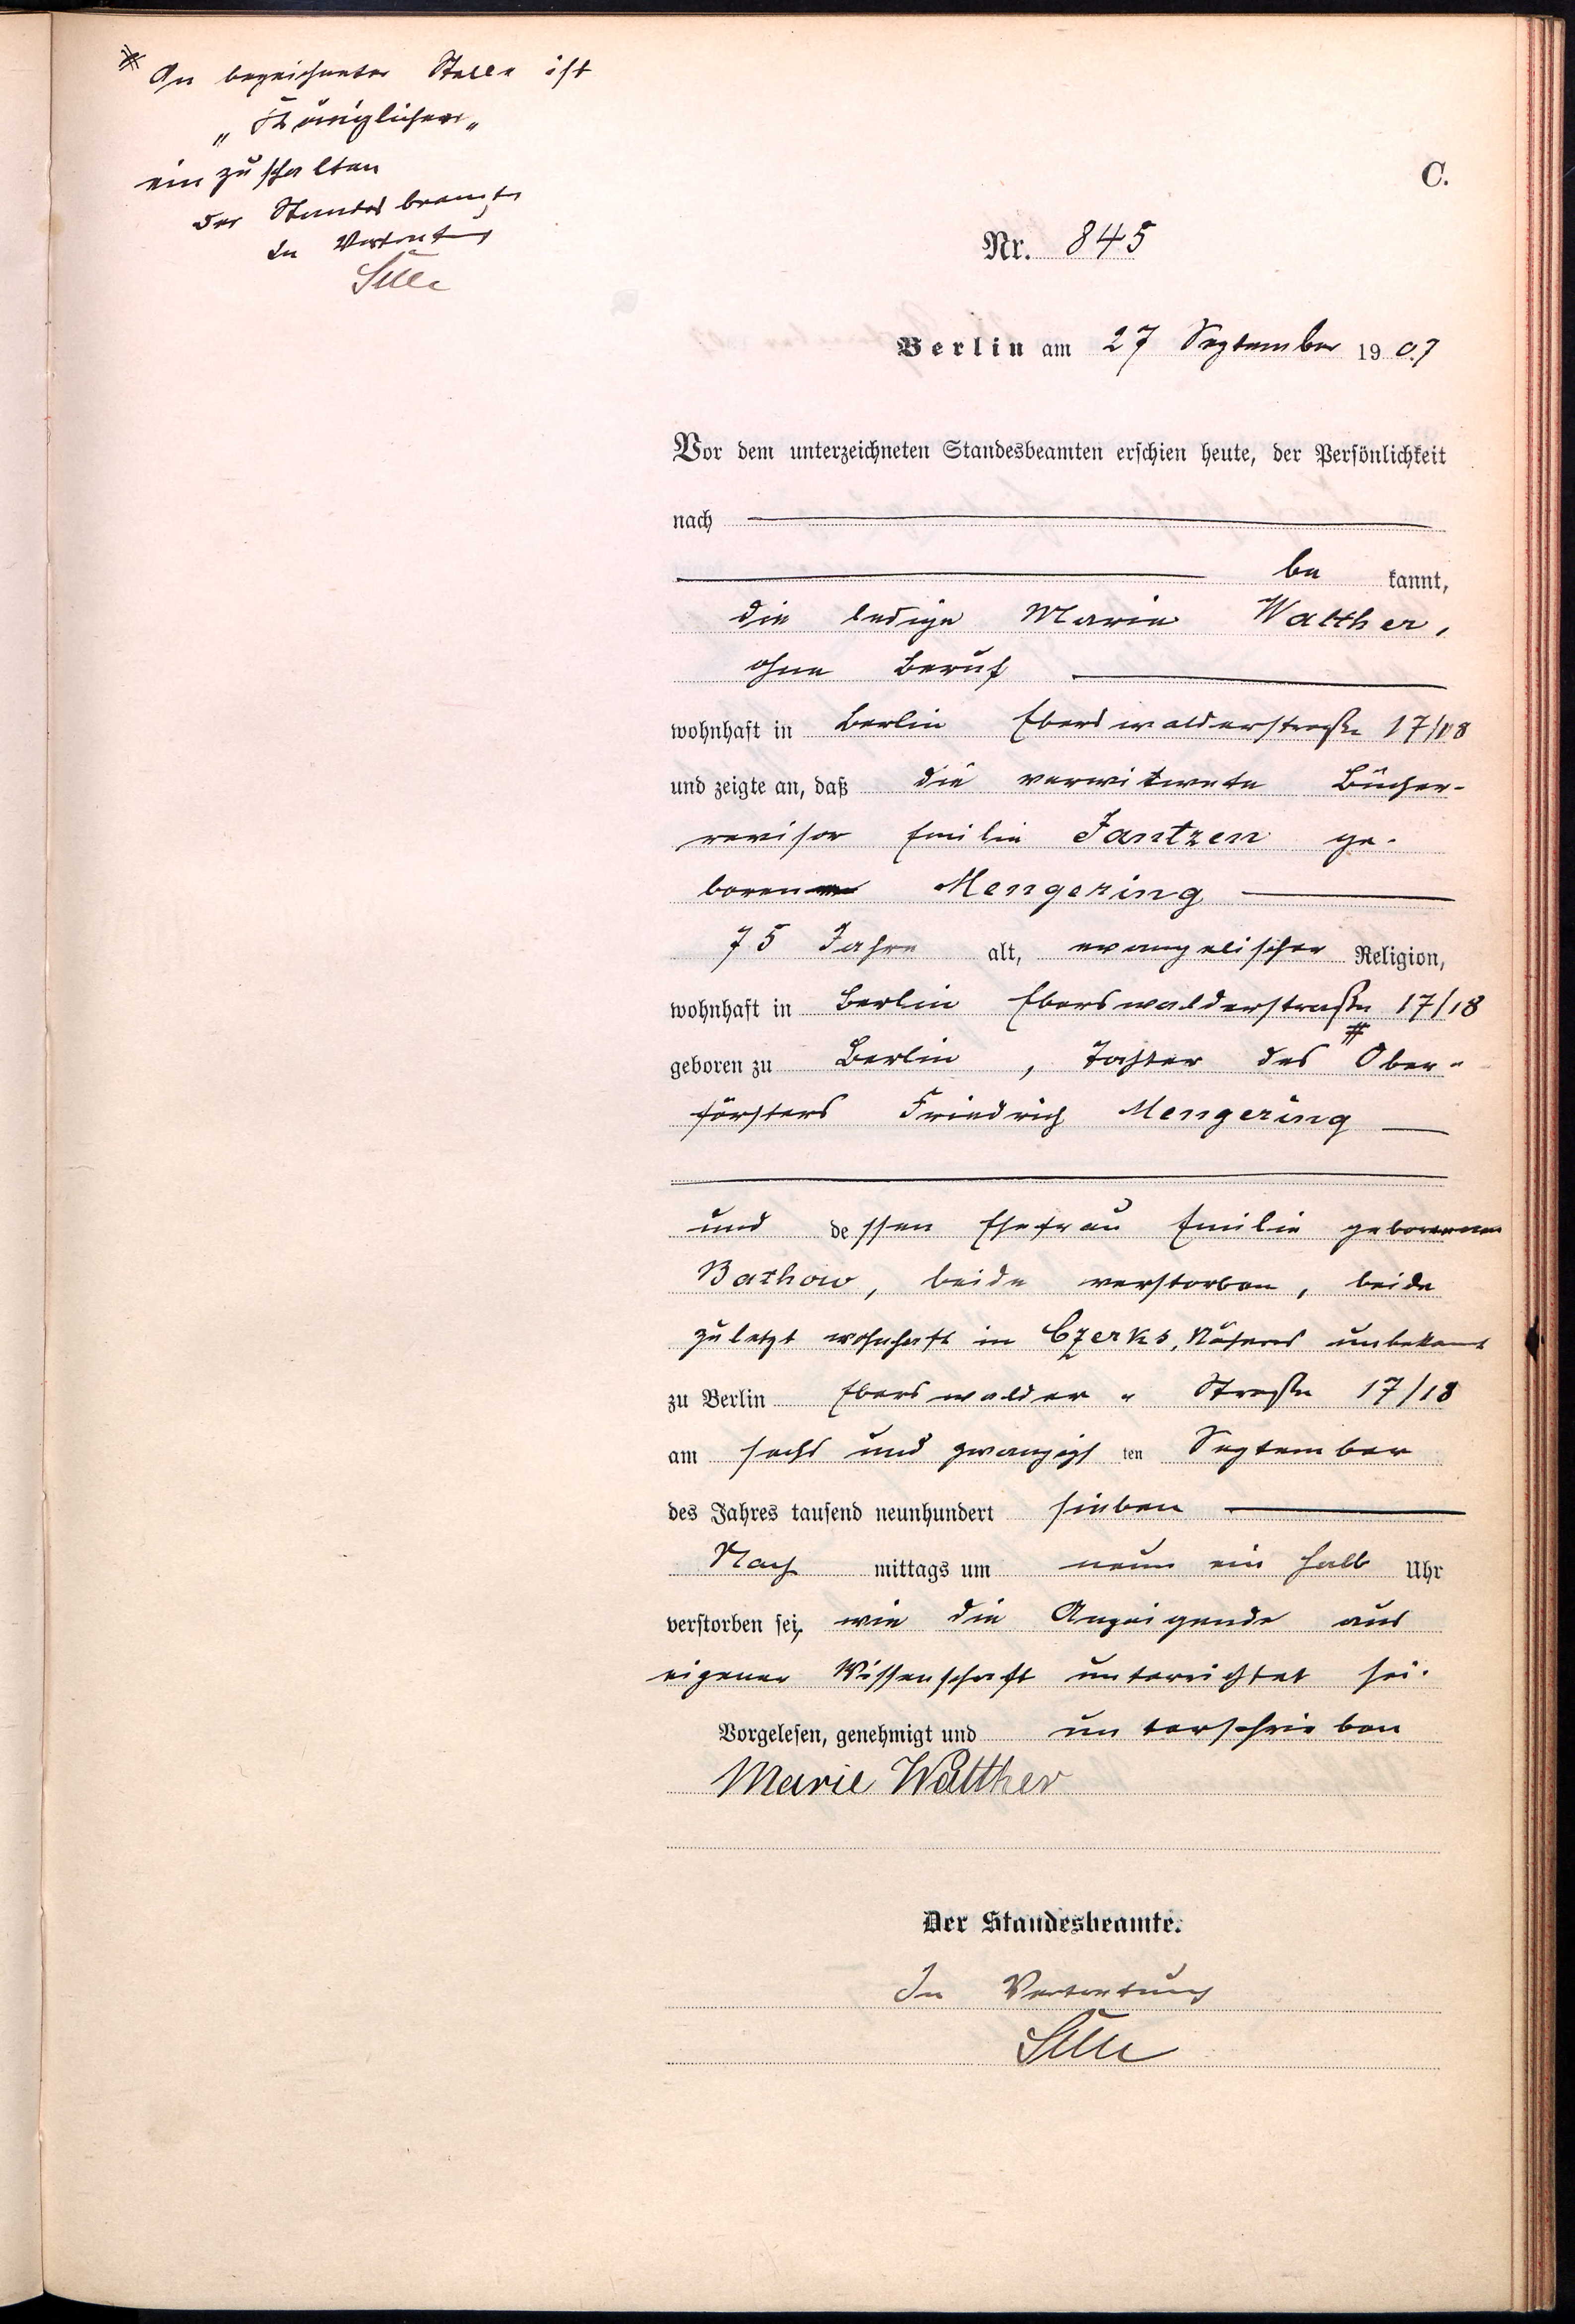 # An bezeichneter Stelle ist
„Königlichen„
ein zu schalten
der Standesbeamte
In Vertretung
C.
Nr. 845
Berlin am 27 September 1907
Vor dem unterzeichneten Standesbeamten erschien heute, der Persönlichkeit
nach
be kannt,
die ledige Marie Walther,
ohne Beruf
wohnhaft in Berlin Eberswalderstraße 17/18
und zeigte an, daß die verwitwete Bücher-
revisor Emilie Jantzen ge-
borene Mengering
75 Jahre alt, evangelischer Religion,
wohnhaft in Berlin Eberswalderstraße 17/18
geboren zu Berlin, Tochter des # Ober-
försters Friedrich Mengering
und dessen Ehefrau Emilie geborenen
Bathow, beide verstorben, beide
zuletzt wohnhaft in Czersk, Näheres unbekannt
zu Berlin Eberswalder - Straße 17/18
am sechs und zwanzigsten September
des Jahres tausend neunhundert sieben
Nach mittags um neun ein halb Uhr
verstorben sei, wie die Anzeigende aus
eigener Wissenschaft unterrichtet sei.
Vorgelesen, genehmigt und unterschrieben
Marie Walther
Der Standesbeamte.
In Vertretung